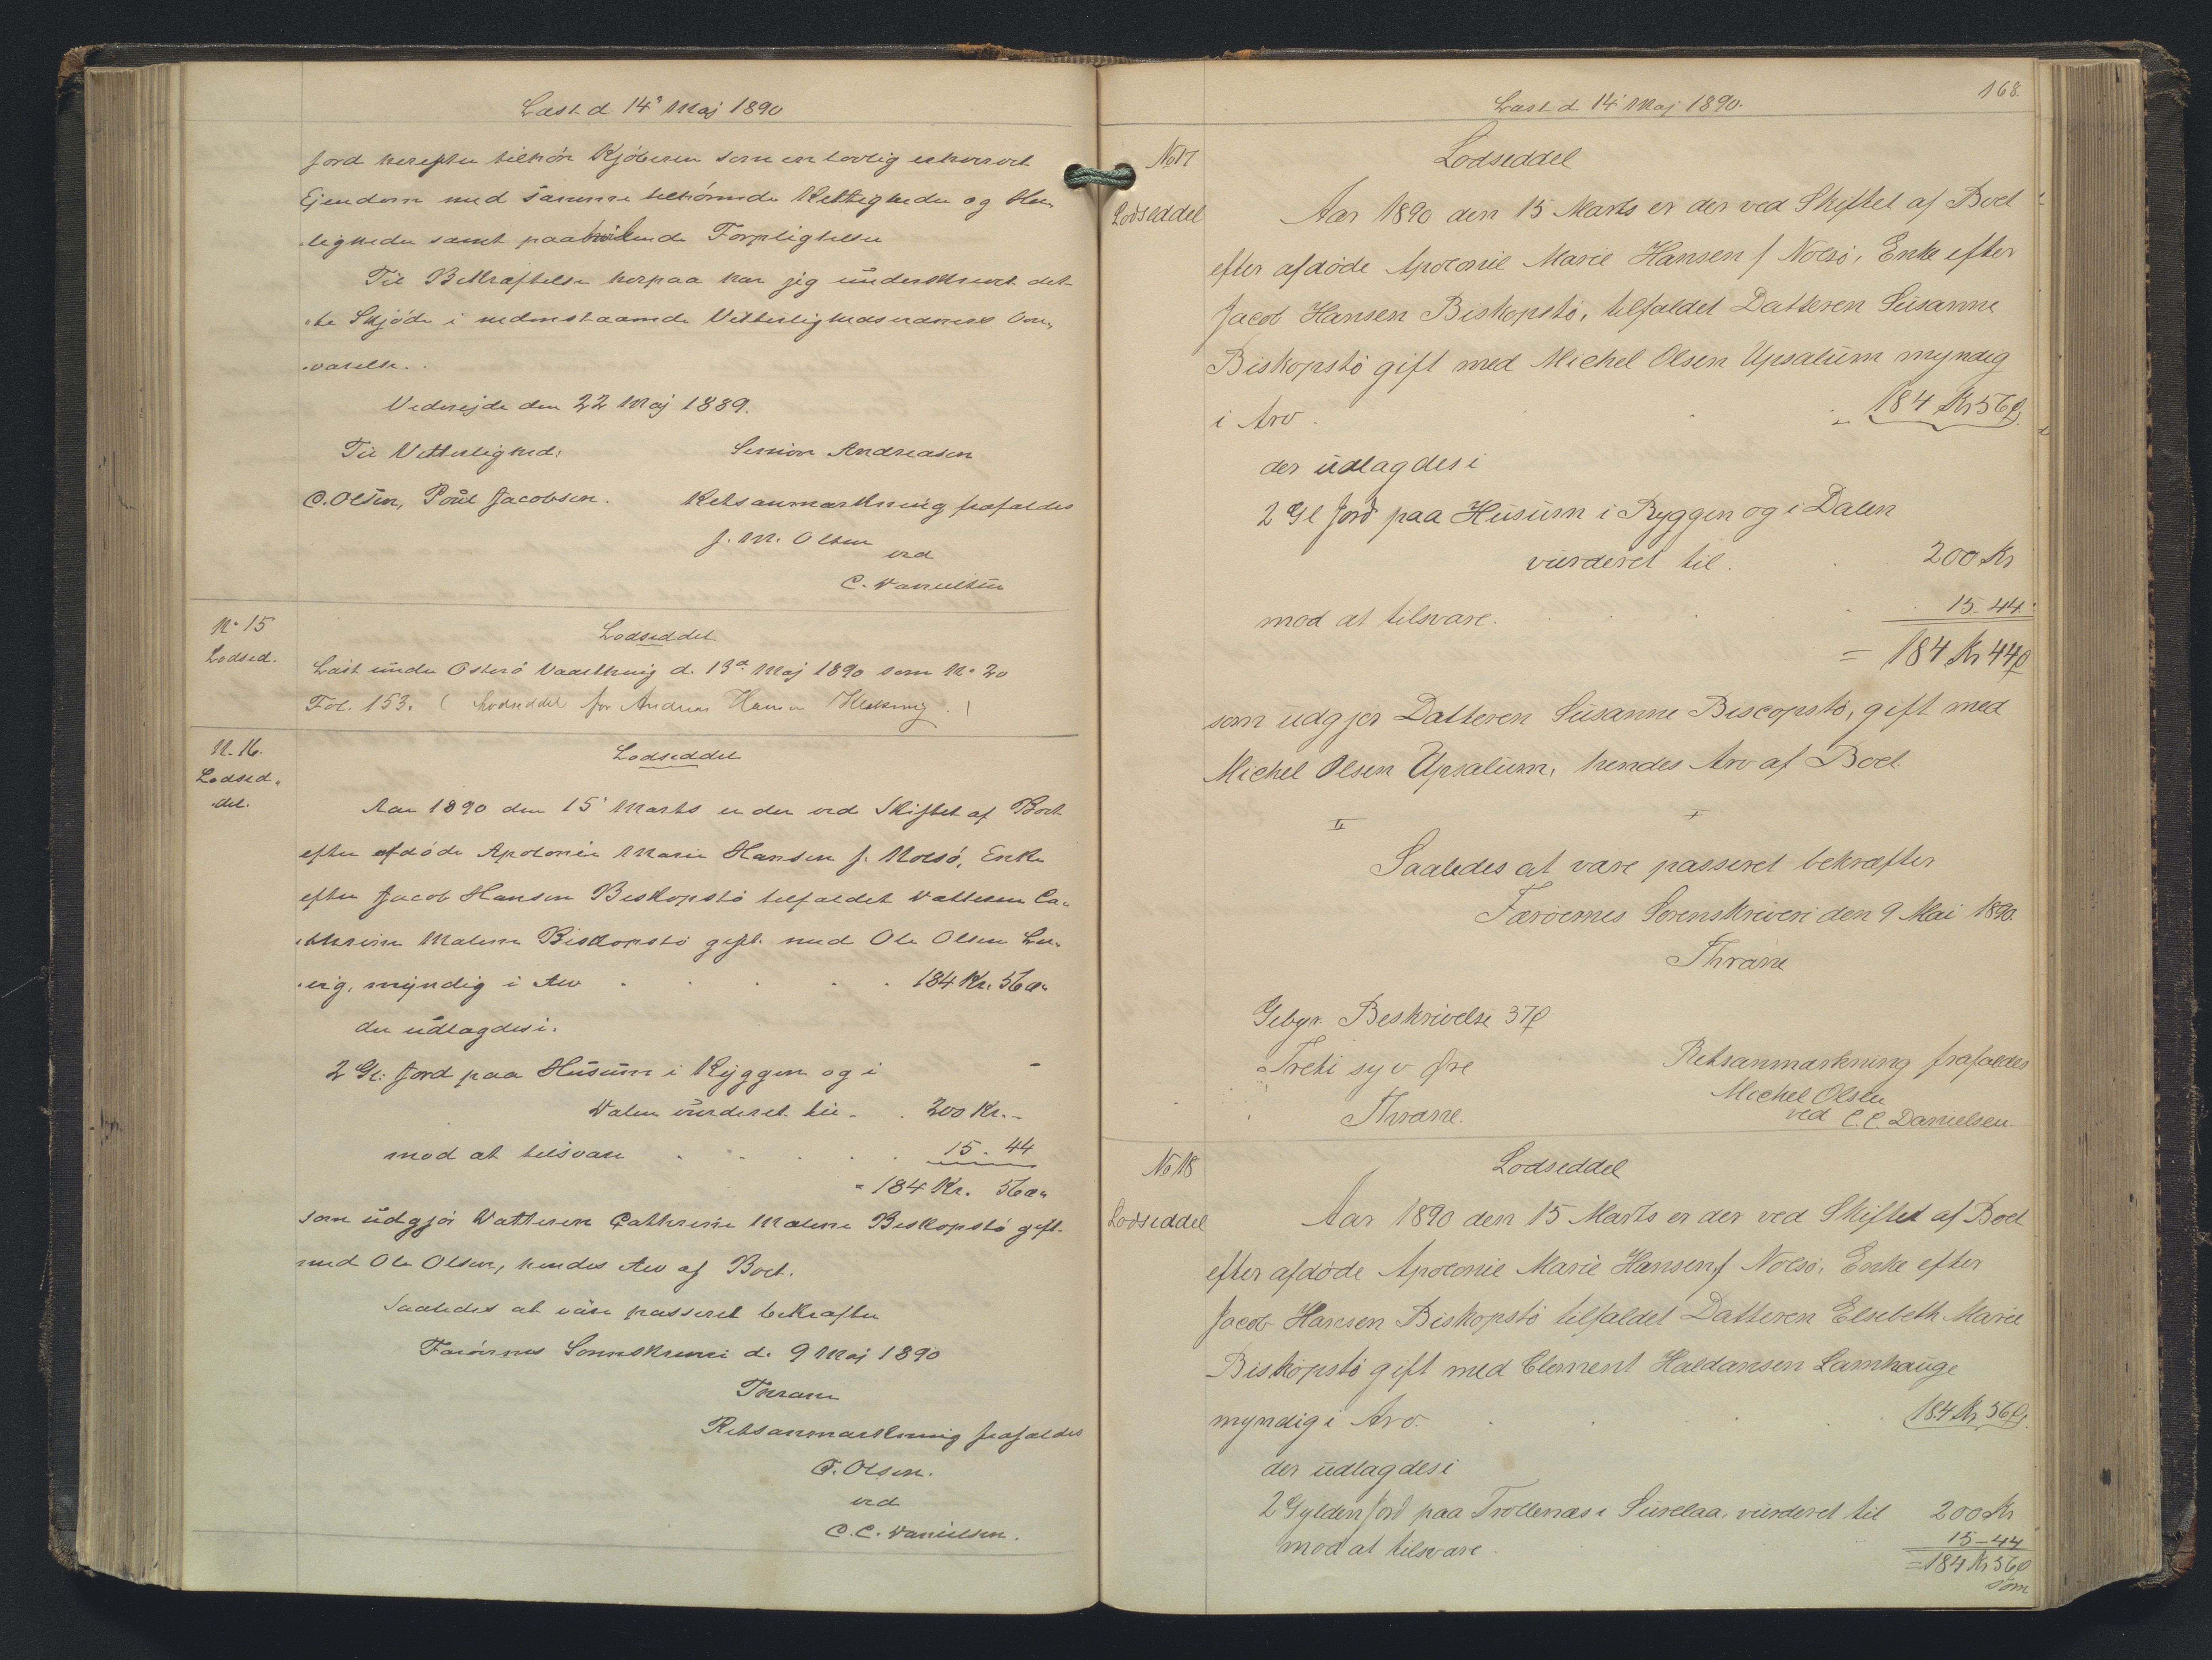 Læst d. 14' Maj 1890
Jord herefter tilhør Kjøberen som en lovlig erhvervet
Ejendom med samme tilhørende Rettigheder og Her-
ligheder samt paahvilende Forpligtelser
Til Bekræftelse herpaa har jeg underskrevet det-
te Skjøde i nedenstaaende Vitterlighedsvidners Over-
værelse.
Vidvejde den 22 Maj 1889.
Til Vitterlighed: Simon Andreasen
C. Olsen, Poul Jacobsen. Retsanmærkning frafaldes
J. M. Olsen
ved
C. Danielsen
No 15 Lodseddel
Lodsed.
Læst under Østerø Vaarthing d. 13de Maj 1890 som No 20
Fol. 153. ( Lodseddel for Andreas Hansen )
N. 16. Lodseddel
Lodsed-
del.
Aar 1890 den 15' Marts er der ved Skiftet af Boet
efter afdøde Apolonie Marie Hansen f. Nolsø, Enke
efter Jacob Hansen Biskopstø tilfaldet Datteren Ca-
thrine Malene Biskopstø gift med Ole Olsen Ler-
vig, myndig i Arv 184 Kr. 56 Ør.
der udlagdes i.
2 Gl. Jord paa Husum i Ryggen og i
Dalen vurderet til 200 Kr.-
mod at tilsvare 15 - 44
= 184 Kr. 56 Ør.
som udgjør Datteren Cathrine Malene Biskopstø gift
med Ole Olsen, hendes Arv af Boet.
Saaledes at være passeret bekræfter
Færøernes Sorenskriveri d. 9 Maj 1890
Thrane
Retsanmærkning frafaldes
O. Olsen.
ved
C. C. Danielsen.
168.
Læst d. 14' Maj 1890.
No 17 Lodseddel
Lodseddel Aar 1890 den 15 Marts er der ved Skiftet af Boet
efter afdøde Apolonie Marie Hansen f Nolsø, Enke efter
Jacob Hansen Biskopstø, tilfaldet Datteren Susanne
Biskopstø gift med Michel Olsen Upsalum myndig
i Arv. 184 Kr 56 Ø.
der udlagdes i
2 Gl Jord paa Husum i Ryggen og i Dalen
vurderet til. 200 Kr
mod at tilsvare. 15-44.
= 184 Kr 44 Ø
som udgjør Datteren Susanne Biscopstø, gift med
Michel Olsen Upsalum, hendes Arv af Boet.
Saaledes at være passeret bekræfter
Færøernes Sorenskriveri den 9 Mai 1890.
Thrane
Gebyr. Beskrivelse 37 Ø
Treti syv Øre Retsanmærkning frafaldes
Michel Olsen
Thrane. ved C. C. Danielsen.
No 18 Lodseddel
Lodseddel Aar 1890 den 15 Marts er der ved Skiftet af Boet
efter afdøde Apolonie Marie Hansen f Nolsø, Enke efter
Jacob Hansen Biskopstø tilfaldet Datteren Elsebeth Marie
Biskopstø gift med Clement Haldansen Lamhauge
myndig i Arv. 184 Kr 56 Ø.
der udlagdes i
2 Gylden Jord paa Trollenæs i Surelaa, vurderet til 200 Kr
mod at tilsvare 15-44
= 184 Kr 56 Ø
som